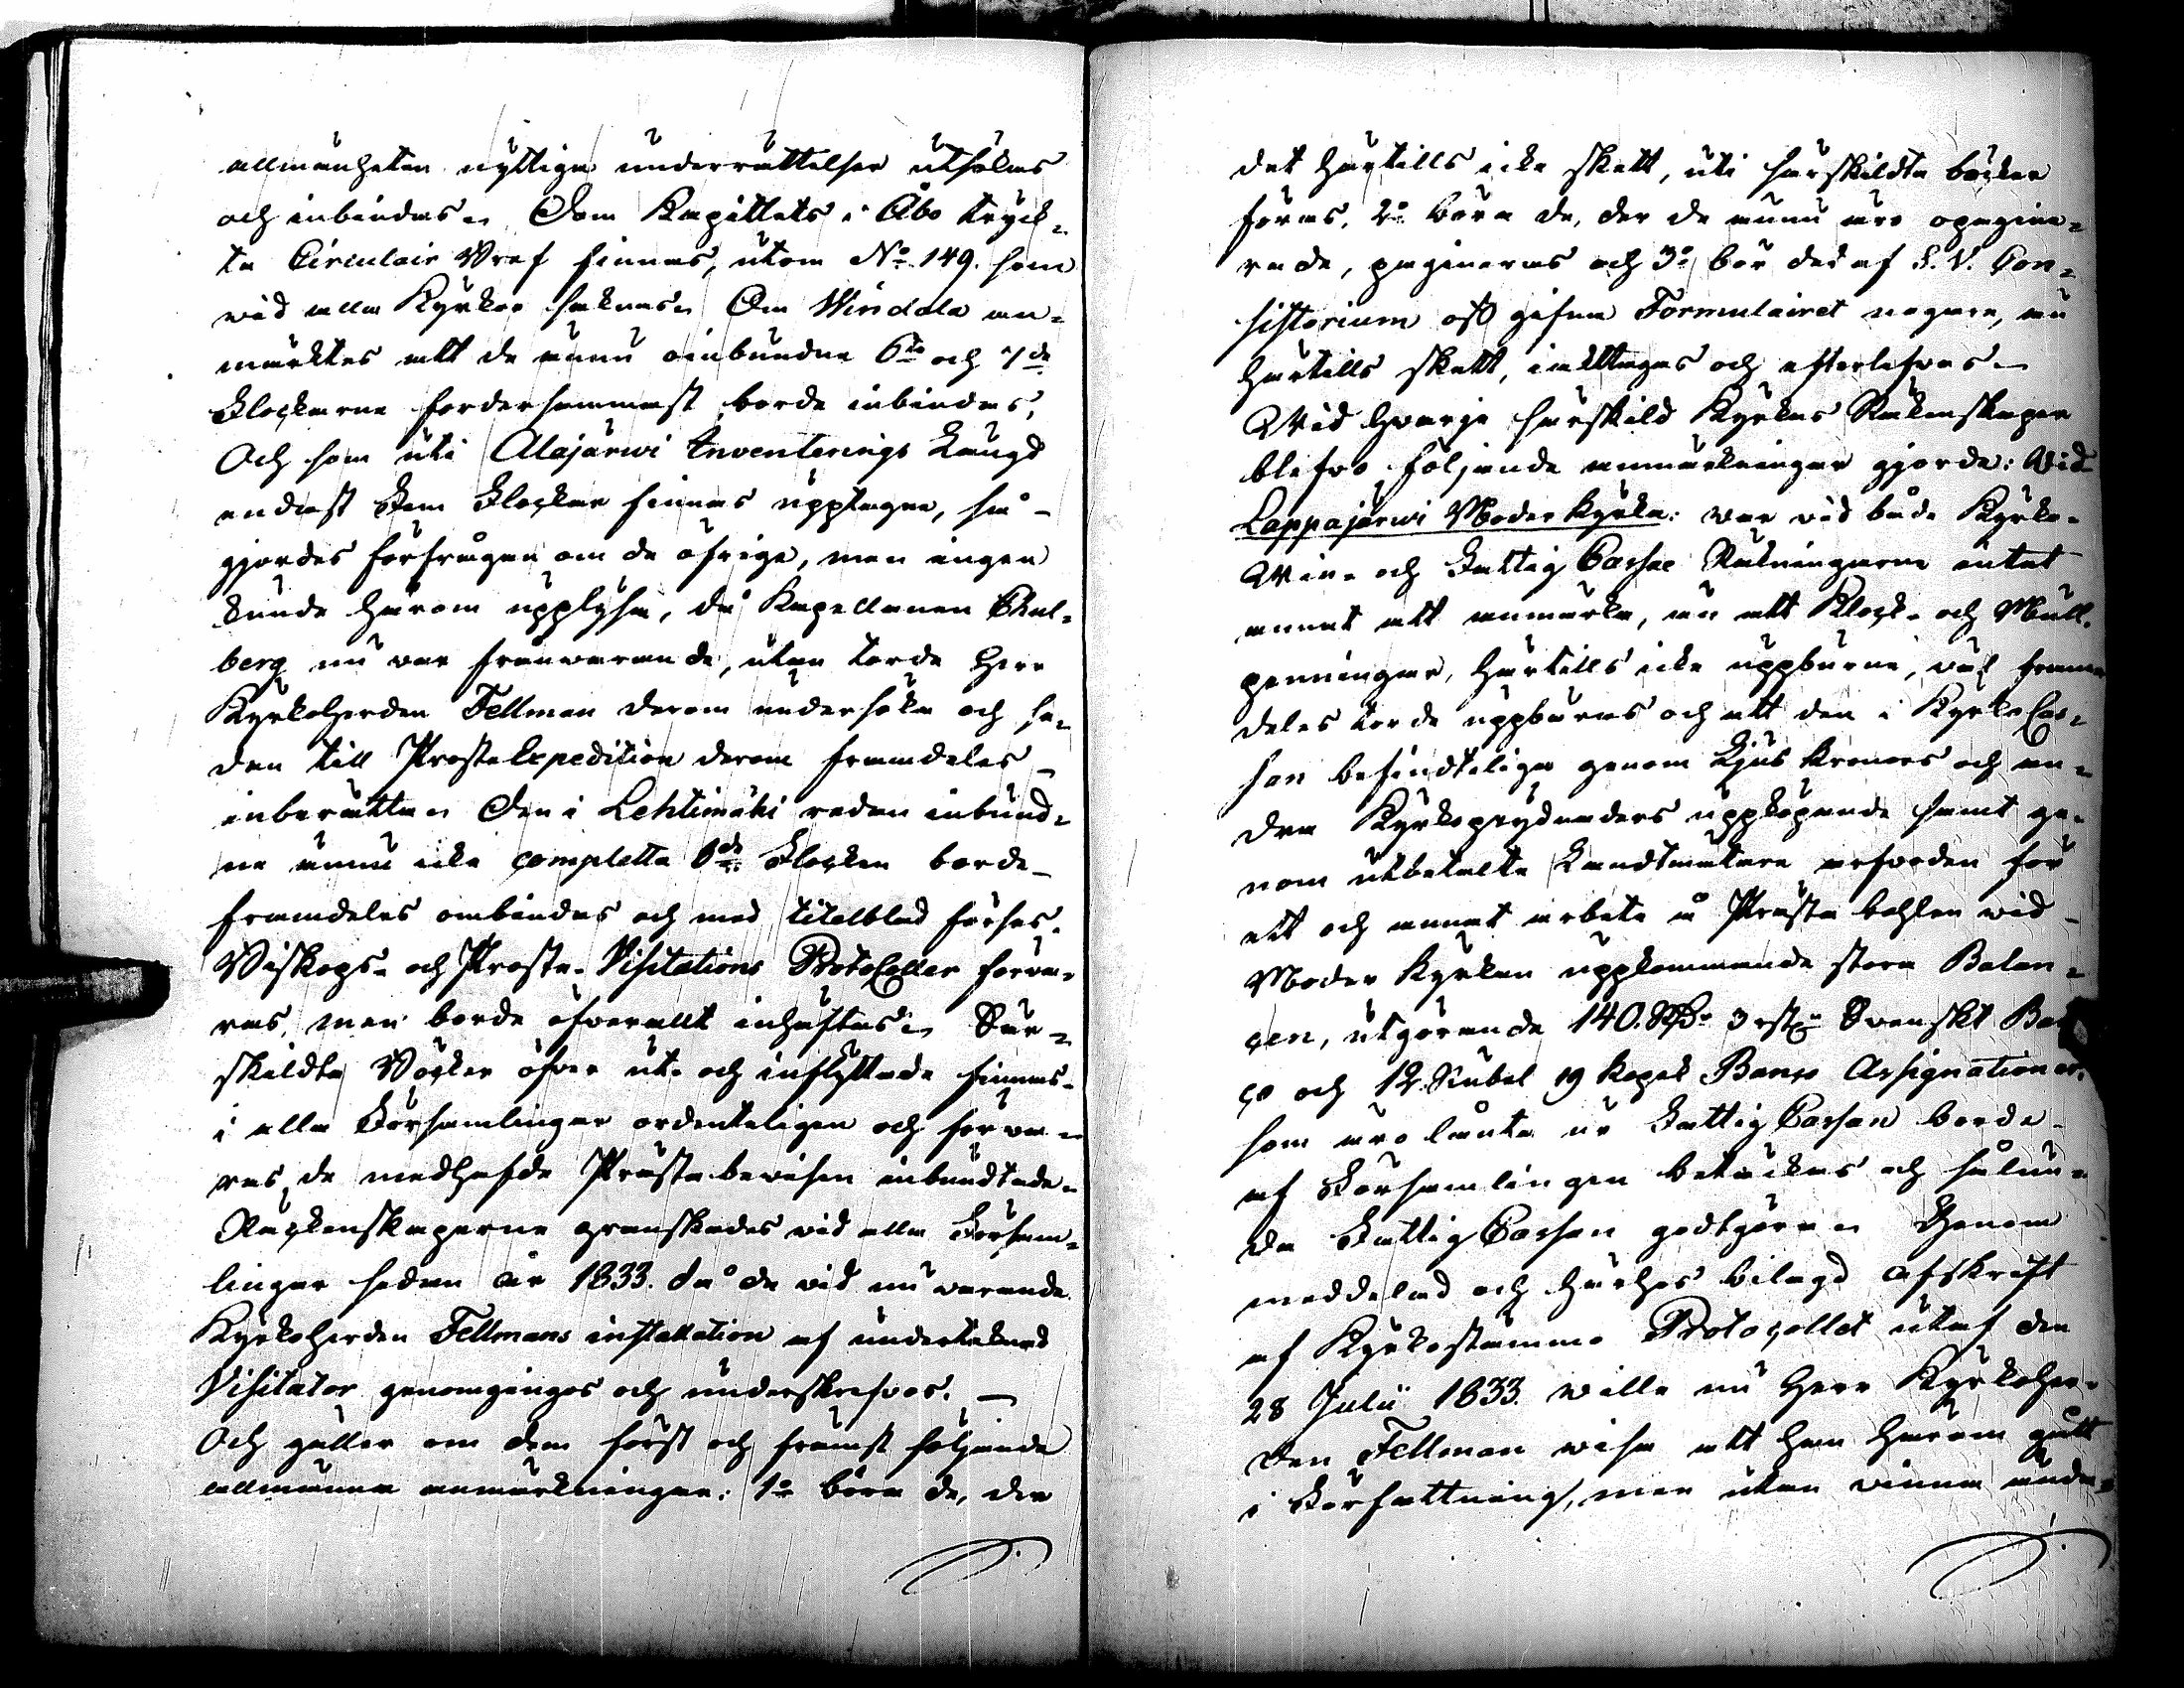 allmänheten nyttiga underrättelser utsökas
och inbindas. Dom Kapitlets i Åbo tryck-
ta Circulair Bref finnas, utom No 149. som
vid alla Kyrkor saknas. Om Windala an-
märktes att de ännu oinbundna 6te och 7de
Flockarne fordersammast borde inbindas,
Och som uti Alajärwi Inventerings Längd
endast Fem Flockar finnas upptagne, så
gjordes förfrågan om de öfrige, men ingen
kunde härom upplysa, då Kapellanen Chal-
berg nu var frånvarande, utan torde Herr
Kyrkoherden Fellman derom undersöka och se-
dan till ProsteExpedition derom framdeles
inberätta. Den i Lehtimäki redan inbund-
ne ännu icke completta 6de Flocken borde
framdeles ombindas och med titelblad förses.
Biskops- och Proste-Visitations Protocoller förva-
ras, men borde öfverallt inhäftas. Sär-
skildta Böcker öfver ut- och inflyttade finnas
i alla Församlingar ordenteligen och förva-
ras de medhafde Prästabevisen inbundtade.
Räckenskaperne granskades vid alla Försam-
lingar sedan år 1833. då de vid nu varande
Kyrkoherden Fellmans installation af undertecknad
Visitator genomgingos och underskrefvos. —
Och gäller om dem först och främst följande
allmänna anmärkningar: 1o böra de, der
det härtills icke skett, uti särskildta böcker
föras, 2o böra de, der de ännu äro opagine-
rade, pagineras och 3o bör det af E. V. Con-
sistorium oss gifna Formulairet nogare, än
härtills skett, iakttagas och efterlefvas. —
Vid hvarje särskild Kyrkas Räkenskaper
blefvo följande anmärkningar gjorda: Vid
Lappajärwi Moder Kyrka: var vid både Kyrko-
Vin- och Fattig Cassae Räkningarne intet
annat att anmärka, än att Klock- och Mull-
penningar, härtills icke uppburne, väl fram-
deles torde uppbäras och att den i Kyrko Cas-
san befindteliga genom Ljus kronors och an-
dra Kyrkoprydnaders uppköpande samt ge-
nom utbetalte Landtmätare arfvoden för
ett och annat arbete å Prästa bohlen vid
Moder Kyrkan uppkommande stora Balan-
cen, utgörande 140. RD 3 rst Svenskt Ban-
co och 12. Rubel 19 Kopek Banco Assignationer,
som äro lånta ur Fattig Cassan borde
af Församlingen betäckas och sålun-
da Fattig Cassan godtgöras. Genom
meddelad och härhos bilagd afskrift
af Kyrkostämmo Protocollet utaf den
28 Julii 1833. ville nu Herr Kyrkoher-
den Fellman visa att han härom gått
i Författning, men utan vinna ända-